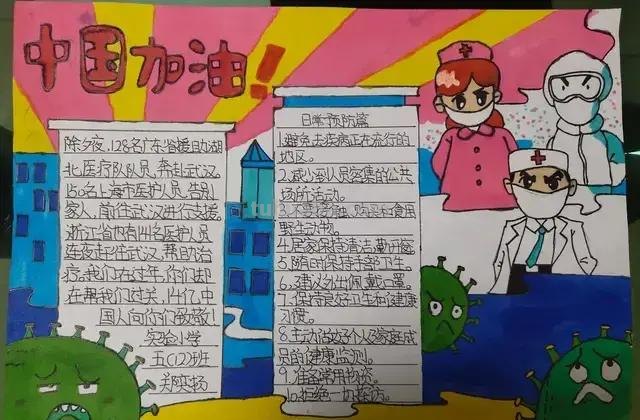 中国加油！
除夕夜，128名广东省援助湖
北医疗队队员，奔赴武汉。
150名上海市医护人员，告别
家人，前往武汉进行支援。
浙江省内有141名医护人员
连夜赶往武汉，帮助治
疗。我们在过年，你们却
在帮我们过关，14亿中
国人向你们致敬！
实验小学
五(12)班
日常预防篇
1.避免去疾病正在流行的
地区。
2.减少到人员密集的公共
场所活动。
3.不要接触、购买和食用
野生动物。
4.居家保持清洁，勤开窗。
5.随时保持手部卫生。
6.建议外出佩戴口罩。
7.保持良好卫生和健康
习惯。
8.主动做好个人及家庭成
员的健康监测。
9.准备常用物资。
10.拒绝一切探访。